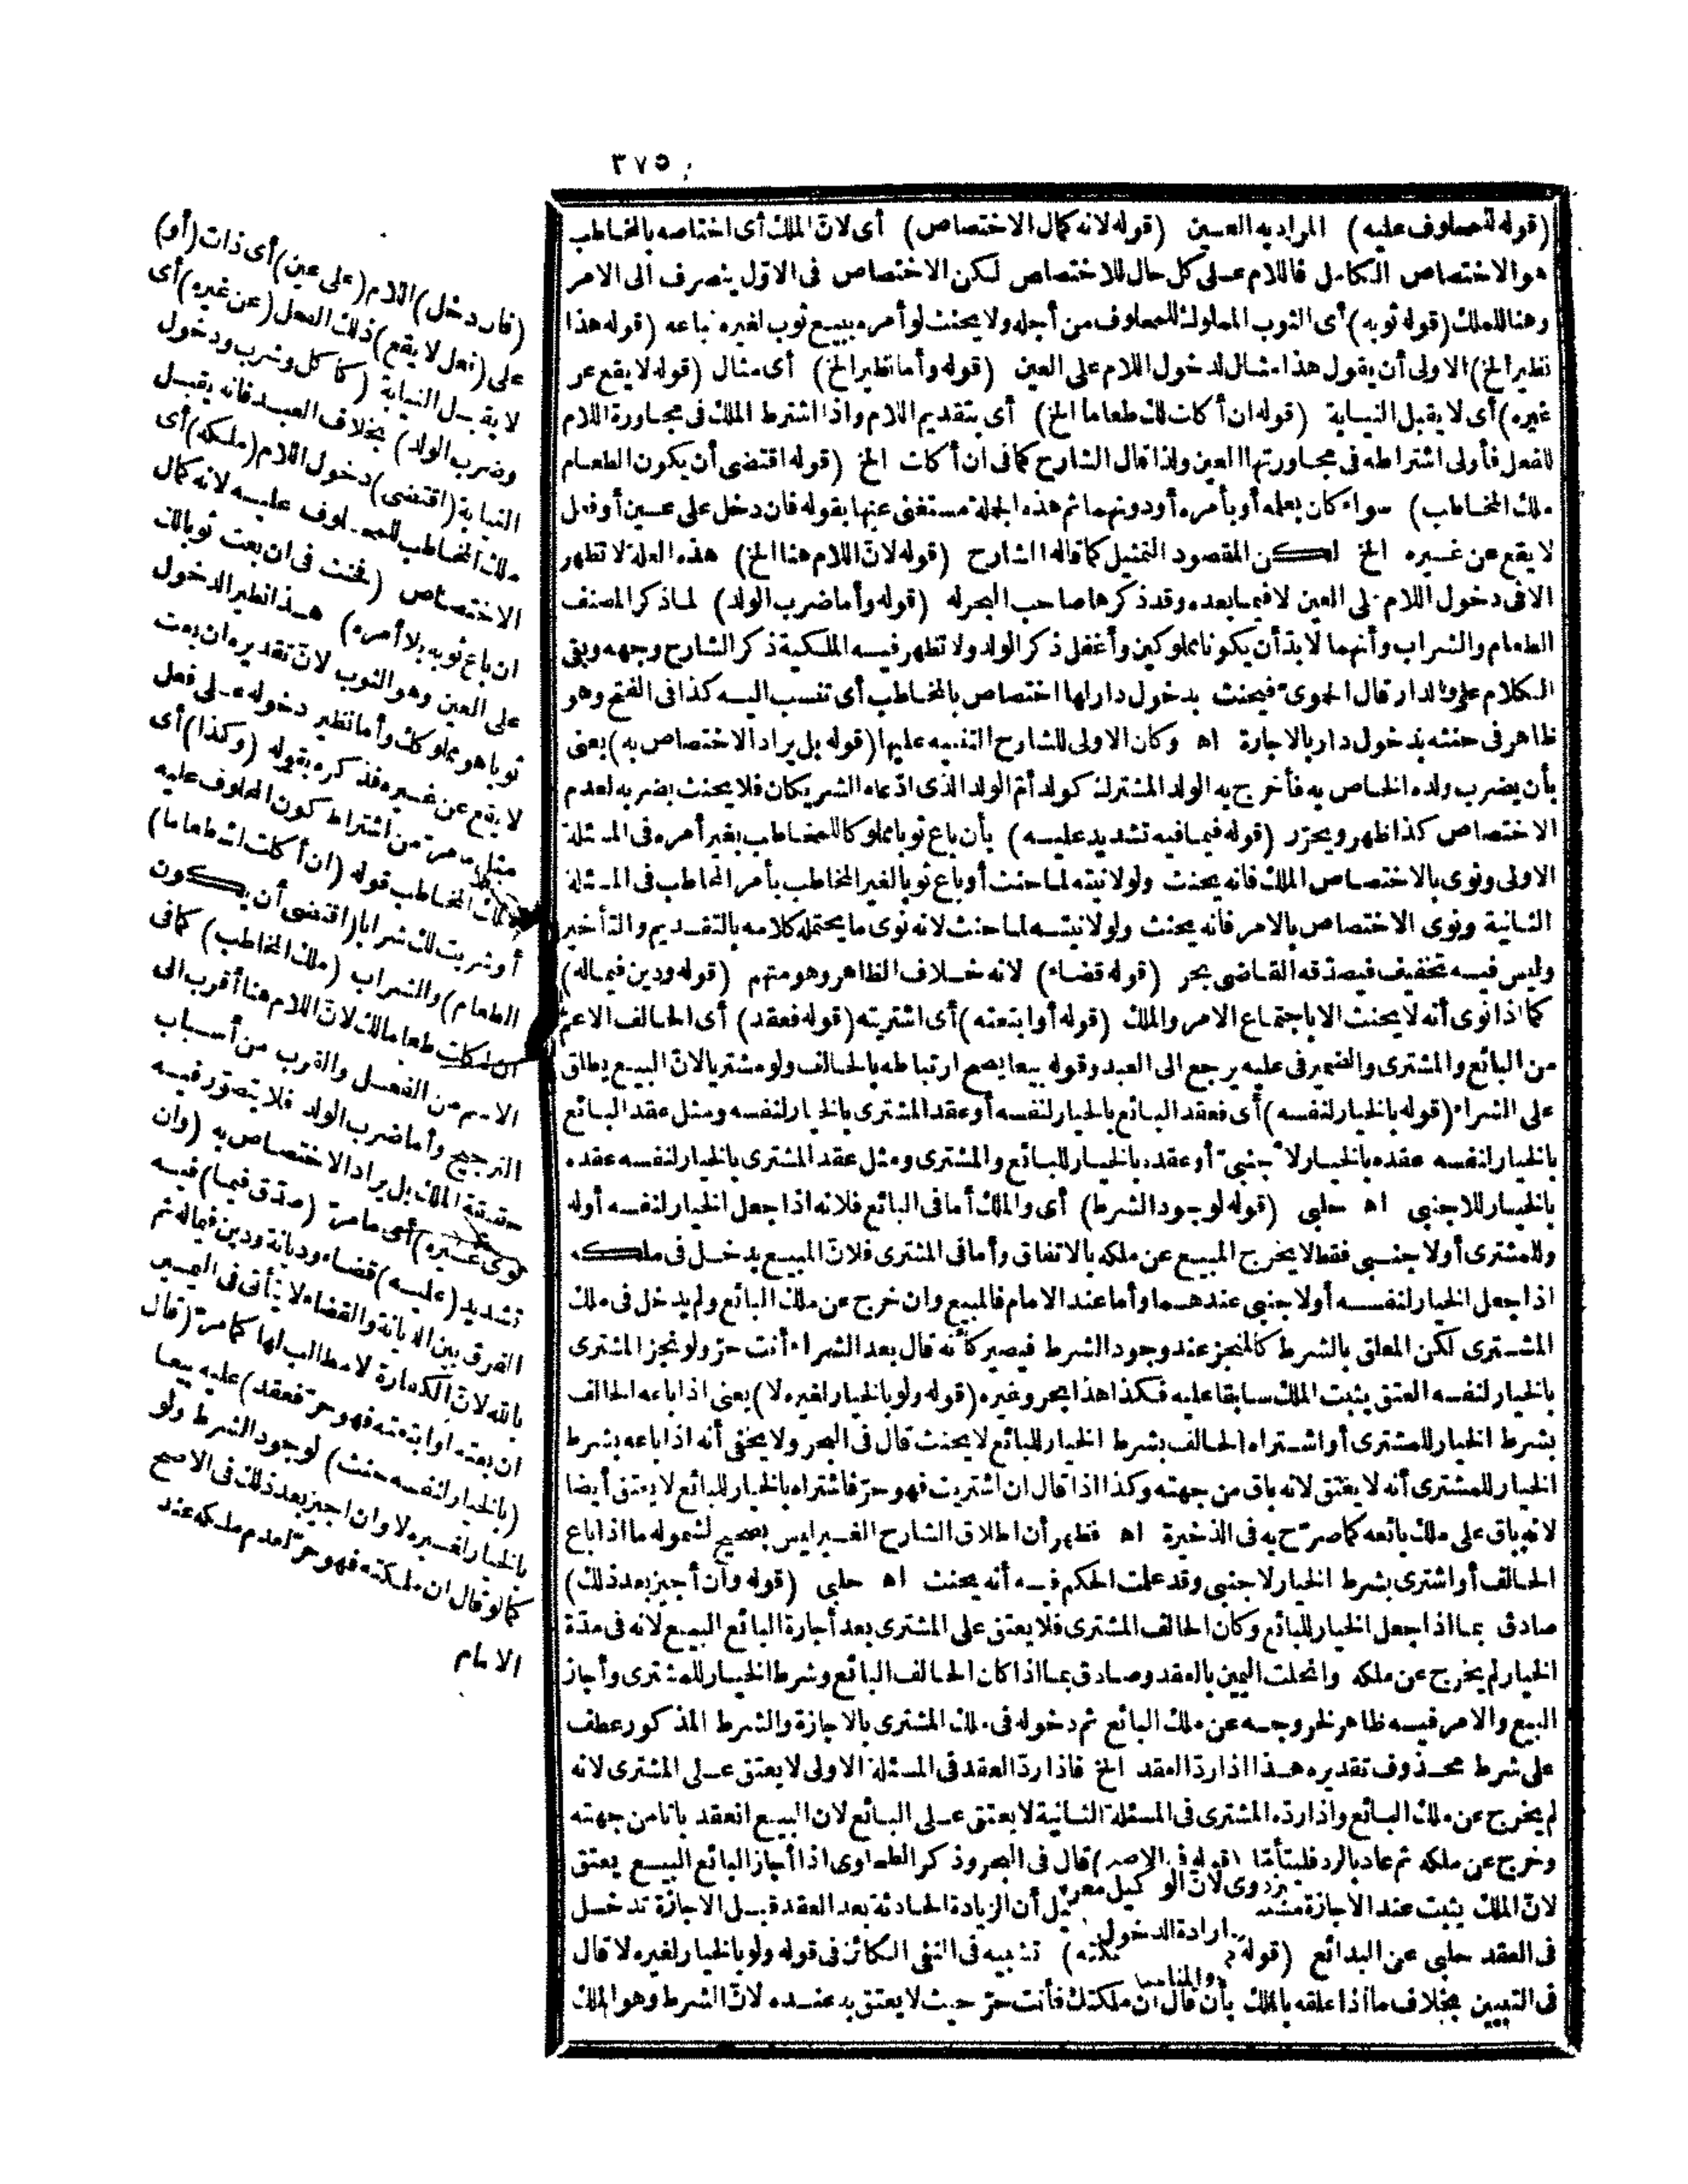 ٣٧٥
(قوله للمحلوف عليه) المراد به العين (قوله لانه كمال الاختصاص) أى لانّ الملك أى اختاصه بالمخاطب
هو الاختصاص الكامل فاللام على كل حال للاختصاص لكن الاختصاص فى الاوّل ينصرف الى الامر
وهنا للملك (قوله ثوبه) أى الثوب المملوك للمحلوف من أجله ولا يحنث لو أمره ببيع ثوب لغيره فباعه (قوله هذا
نظير الخ) الاولى أن يقول هذا مثال لدخول اللام على العين (قوله وأما نظير الخ) أى مثال (قوله لا يقع عن
غيره) أى لا يقبل النيابة (قوله ان أكلت لك طعاما الخ) أى بتقديم اللام واذا اشترط الملك فى مجاورة اللام
للفعل فأولى اشتراطه فى مجاورتها العين ولذا قال الشارح كما فى ان أكلت الخ (قوله اقتضى أن يكون الطعام
ملك المخاطب) سواء كان بعلمه أو بأمره أو دونهما ثم هذه الجملة مستغنى عنها بقوله فان دخل على عين أو فعل
لا يقع عن غيره الخ لكن المقصود التمثيل كما قاله الشارح (قوله لانّ اللام هنا الخ) هذه العلة لا تظهر
الا فى دخول اللام على العين لا فيما بعده وقد ذكرها صاحب البحر له (قوله وأما ضرب الولد) لما ذكر المصنف
الطعام والشراب وأنهما لا بدّ أن يكونا مملوكين وأغفل ذكر الولد ولا تظهر فيه الملكية ذكر الشارح وجهه وبقى
الكلام على الدار قال الحموى فيحنث بدخول دار لها اختصاص بالمخاطب أى تنسب اليه كذا فى الفتح وهو
ظاهر فى حنثه بدخول دار بالاجارة اه وكان الاولى للشارح التنبيه عليها (قوله بل يراد الاختصاص به) يعنى
بأن يضرب ولده الخاص به فأخرج به الولد المشترك كولد أمّ الولد الذى ادّعاه الشريكان فلا يحنث بضربه لعدم
الاختصاص كذا ظهر ويحرّر (قوله فيما فيه تشديد عليه) بأن باع ثوبا مملوكا للمخاطب بغير أمره فى المسئلة
الاولى ونوى بالاختصاص الملك فانه يحنث ولولا نيته لما حنث أو باع ثوبا لغير المخاطب بأمر المخاطب فى المسئلة
الثانية ونوى الاختصاص بالامر فانه يحنث ولولا نيته لما حنث لانه نوى ما يحتمله كلامه بالتقديم والتأخير
وليس فيه تخفيف فيصدّقه القاضى بحر (قوله قضاء) لانه خلاف الظاهر وهو متهم (قوله ودين فيما له)
كما اذا نوى أنه لا يحنث الا باجتماع الامر والملك (قوله أو ابتعته) أى اشتريته (قوله فعقد) أى الحالف الاعمّ
من البائع والمشترى والضمير فى عليه يرجع الى العبد وقوله بيعا يصح ارتباطه بالحالف ولو مشتريا لانّ البيع يطلق
على الشراء (قوله بالخيار لنفسه) أى فعقد البائع بالخيار لنفسه أو عقد المشترى بالخيار لنفسه ومثل عقد البائع
بالخيار لنفسه عقده بالخيار لاجنبىّ أو عقده بالخيار للبائع والمشترى ومثل عقد المشترى بالخيار لنفسه عقده
بالخيار للاجنبى اه حلبى (قوله لوجود الشرط) أى والملك أما فى البائع فلانه اذا جعل الخيار لنفسه أو له
وللمشترى أو لاجنبى فقط لا يخرج المبيع عن ملكه بالاتفاق وأما فى المشترى فلانّ المبيع يدخل فى ملكه
اذا جعل الخيار لنفسه أو لاجنبى عندهما وأما عند الامام فالمبيع وان خرج عن ملك البائع ولم يدخل فى ملك
المشترى لكن المعلق بالشرط كالمنجز عند وجود الشرط فيصير كأنه قال بعد الشراء أنت حرّ ولو نجز المشترى
بالخيار لنفسه العتق يثبت الملك سابقا عليه فكذا هذا بحر وغيره (قوله ولو بالخيار لغيره لا) يعنى اذا باعه الحالف
بشرط الخيار للمشترى أو اشتراه الحالف بشرط الخيار للبائع لا يحنث قال فى البحر ولا يخفى أنه اذا باعه بشرط
الخيار للمشترى أنه لا يعتق لانه باق من جهته وكذا اذا قال ان اشتريت فهو حرّ فاشتراه بالخيار للبائع لا يعتق أيضا
لانه باق على ملك بائعه كما صرّح به فى الذخيرة اه فظهر أن اطلاق الشارح الغير ليس بصحيح لشموله ما اذا باع
الحالف أو اشترى بشرط الخيار لاجنبى وقد علمت الحكم فيه أنه يحنث اه حلبى (قوله وان أجيز بعد ذلك)
صادق بما اذا جعل الخيار للبائع وكان الحالف المشترى فلا يعتق على المشترى بعد أجازة البائع البيع لانه فى مدّة
الخيار لم يخرج عن ملكه وانحلت اليمين بالعقد وصادق بما اذا كان الحالف البائع وشرط الخيار للمشترى وأجاز
البيع والامر فيه ظاهر لخروجه عن ملك البائع ثم دخوله فى ملك المشترى بالاجازة والشرط المذكور عطف
على شرط محذوف تقديره هذا اذا ردّ العقد الخ فاذا ردّ العقد فى المسئلة الاولى لا يعتق على المشترى لانه
لم يخرج عن ملك البائع واذا ردّه المشترى فى المسئلة الثانية لا يعتق على البائع لان البيع انعقد باتا من جهته
وخرج عن ملكه ثم عاد بالرد فليتأمّل (قوله فى الاصح) قال فى البحر وذكر الطحاوى اذا أجاز البائع البيع يعتق
لانّ الملك يثبت عند الاجازة أن الزيادة الحادثة بعد العقد قبل الاجازة تدخل
فى العقد حلبى عن البدائع (قوله تشبيه فى النفى الكائن فى قوله ولو بالخيار لغيره لا قال
فى التبيين بخلاف ما اذا علقه بالملك بأن قال ان ملكتك فأنت حرّ حيث لا يعتق به عنده لانّ الشرط وهو الملك
(فان دخل) اللام (على عين) أى ذات (أو)
على (فعل لا يقع) ذلك الفعل (عن غيره) أى
لا يقبل النيابة (كاكل وشرب ودخول
وضرب الولد) بخلاف العبد فانه يقبل
النيابة (اقتضى) دخول اللام (ملكه) أى
ملك المخاطب للمحلوف عليه لانه كمال
الاختصاص (فحنث فى ان بعت ثوبا لك
ان باع ثوبه بلا أمره) هذا نظير الدخول
على العين وهو الثوب لانّ تقديره ان بعت
ثوبا هو مملوك لك وأما نظير دخوله على فعل
لا يقع عن غيره فذكره بقوله (وكذا) أى
مثل ما مرّ من اشتراط كون المحلوف عليه
ملك المخاطب قوله (ان أكلت لك طعاما)
أو شربت لك شرابا (اقتضى أن يكون
الطعام) والشراب (ملك المخاطب) كما فى
ان أكلت طعاما لك لانّ اللام هنا أقرب الى
الاسم من الفعل والقرب من أسباب
الترجيح وأما ضرب الولد فلا يتصوّر فيه
حقيقة الملك بل يراد الاختصاص به (وان
نوى غيره) أى ما مرّ (صدّق فيما) فيه
تشديد (عليه) قضاء وديانة ودين فيما له ثم
الفرق بين الديانة والقضاء لا يتأتى فى اليمين
بالله لانّ الكفارة لا مطالب لها كما مرّ (قال
ان بعته أو ابتعته فهو حرّ فعقد) عليه بيعا
(بالخيار لنفسه حنث) لوجود الشرط ولو
بالخيار لغيره لا وان اجيز بعد ذلك فى الاصح
كما لو قال ان ملكته فهو حرّ لعدم ملكه عند
الامام